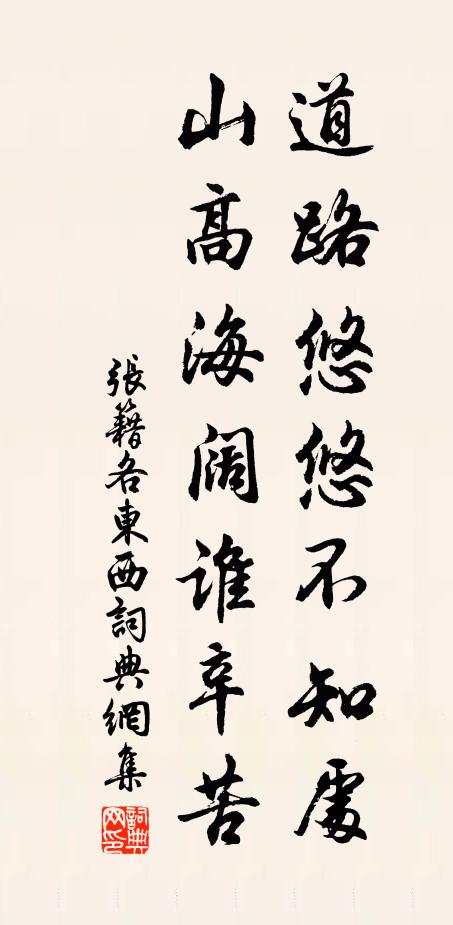 道路悠悠不知處
山高海闊誰辛苦
張籍各東西詞典網集
詞典網印